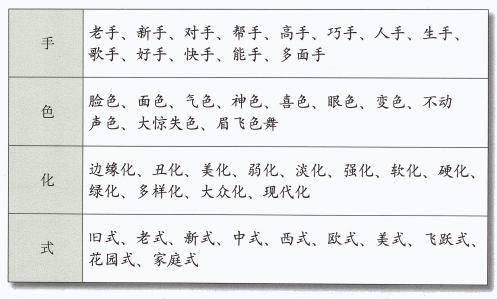 手
老手、新手、对手、帮手、高手、巧手、人手、生手、
歌手、好手、快手、能手、多面手
色
脸色、面色、气色、神色、喜色、眼色、变色、不动
声色、大惊失色、眉飞色舞
化
边缘化、丑化、美化、弱化、淡化、强化、软化、硬化、
绿化、多样化、大众化、现代化
式
旧式、老式、新式、中式、西式、欧式、美式、飞跃式、
花园式、家庭式